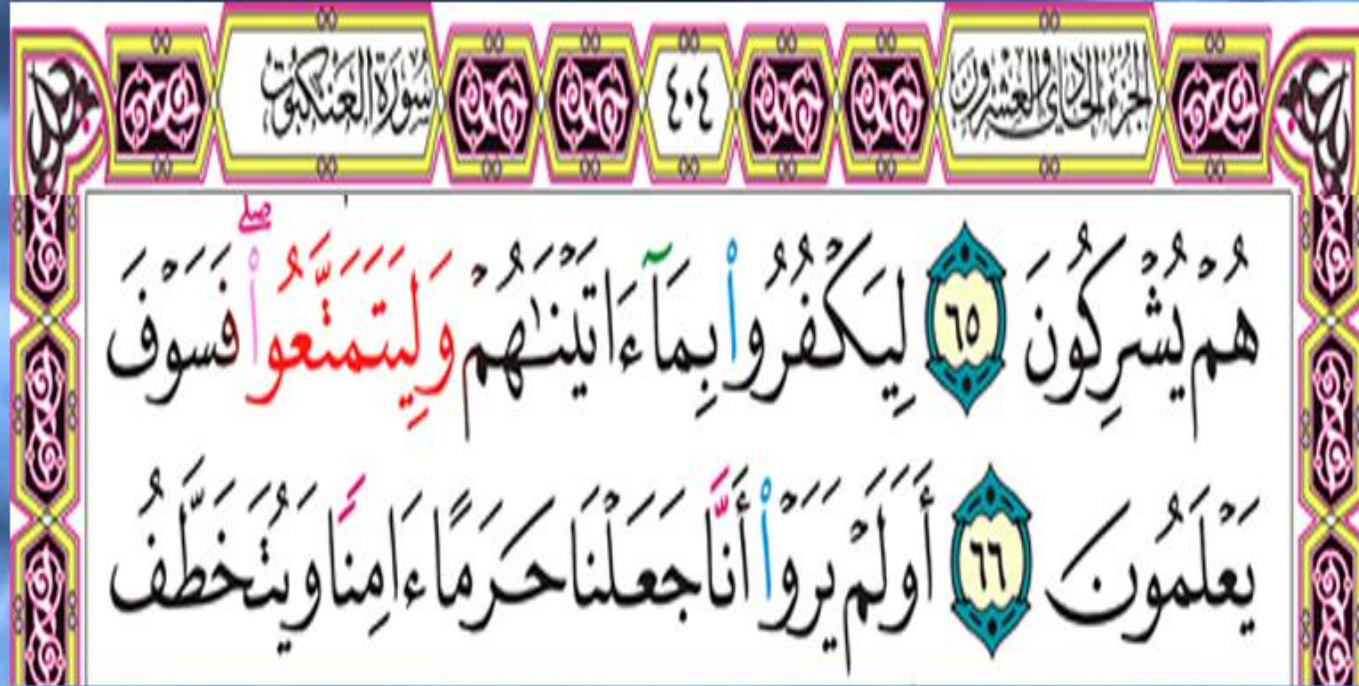 الجزء الحادي والعشرون ٤٠٤ سورة العنكبوت
هُمْ يُشْرِكُونَ ٦٥ لِيَكْفُرُوا۟ بِمَآ ءَاتَيْنَـٰهُمْ وَلِيَتَمَتَّعُوا۟ ۖ فَسَوْفَ
يَعْلَمُونَ ٦٦ أَوَلَمْ يَرَوْا۟ أَنَّا جَعَلْنَا حَرَمًا ءَامِنًا وَيُتَخَطَّفُ